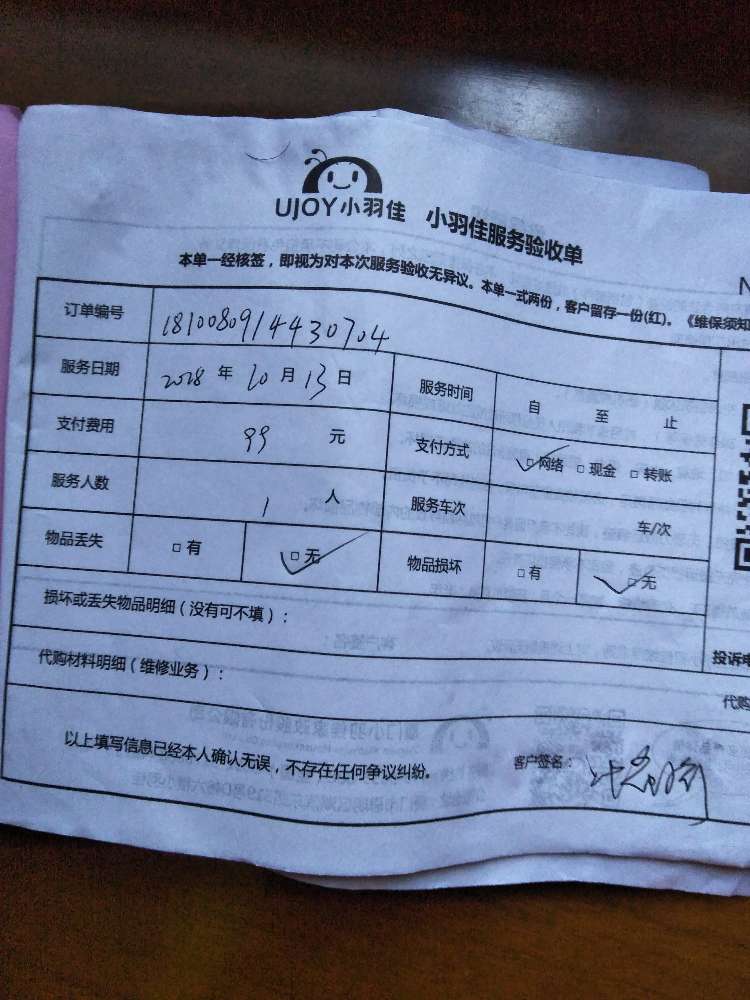 UJOY小羽佳 小羽佳服务验收单
本单一经核签，即视为对本次服务验收无异议。本单一式两份，客户留存一份(红)。《维保须知
N
订单编号 1810080914430704
服务日期 2018 年 10 月 13 日 服务时间 自 至 止
支付费用 99 元 支付方式 ☑网络 □现金 □转账
服务人数 1 人 服务车次 车/次
物品丢失 □有 ☑无 物品损坏 □有 ☑无
损坏或丢失物品明细（没有可不填）：
投诉电
代购材料明细（维修业务）：
代购
以上填写信息已经本人确认无误，不存在任何争议纠纷。 客户签名：